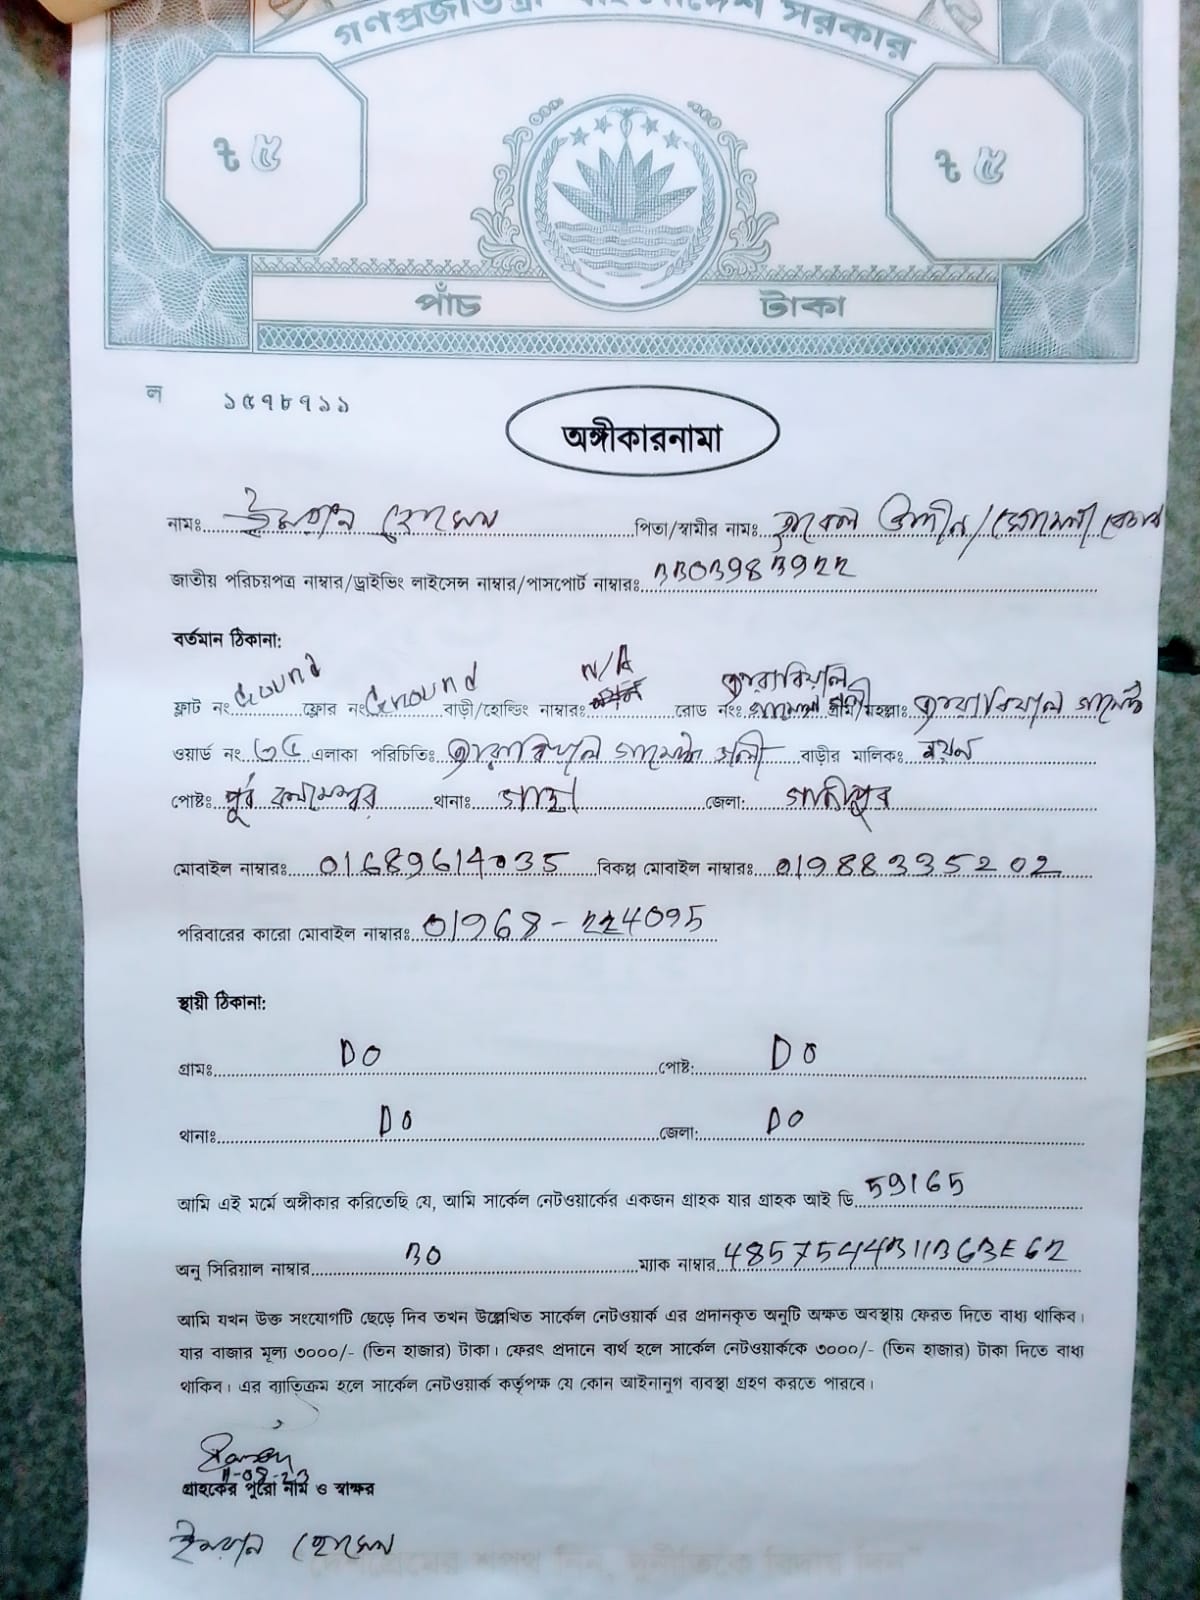 গণপ্রজাতন্ত্রী বাংলাদেশ সরকার
৳ ৫ ৳ ৫
পাঁচ টাকা
ল ১৫৭৮৭১১
অঙ্গীকারনামা
নামঃ ইমরান হোসেন পিতা/স্বামীর নামঃ
জাতীয় পরিচয়পত্র নাম্বার/ড্রাইভিং লাইসেন্স নাম্বার/পাসপোর্ট নাম্বারঃ
বর্তমান ঠিকানা:
ফ্লাট নং Ground ফ্লোর নং Ground বাড়ী/হোল্ডিং নাম্বারঃ N/A রোড নংঃ গ্রাম/মহল্লাঃ
ওয়ার্ড নং ৩৫ এলাকা পরিচিতিঃ বাড়ীর মালিকঃ নয়ন
পোষ্টঃ পূর্ব কলমেশ্বর থানাঃ গাছা জেলা: গাজীপুর
মোবাইল নাম্বারঃ 01689614035 বিকল্প মোবাইল নাম্বারঃ 01988335202
পরিবারের কারো মোবাইল নাম্বারঃ 01968-224095
স্থায়ী ঠিকানা:
গ্রামঃ DO পোষ্ট: DO
থানাঃ DO জেলা: DO
আমি এই মর্মে অঙ্গীকার করিতেছি যে, আমি সার্কেল নেটওয়ার্কের একজন গ্রাহক যার গ্রাহক আই ডি 59165
অনু সিরিয়াল নাম্বার ম্যাক নাম্বার
আমি যখন উক্ত সংযোগটি ছেড়ে দিব তখন উল্লেখিত সার্কেল নেটওয়ার্ক এর প্রদানকৃত অনুটি অক্ষত অবস্থায় ফেরত দিতে বাধ্য থাকিব।
যার বাজার মূল্য ৩০০০/- (তিন হাজার) টাকা। ফেরৎ প্রদানে ব্যর্থ হলে সার্কেল নেটওয়ার্ককে ৩০০০/- (তিন হাজার) টাকা দিতে বাধ্য
থাকিব। এর ব্যাতিক্রম হলে সার্কেল নেটওয়ার্ক কর্তৃপক্ষ যে কোন আইনানুগ ব্যবস্থা গ্রহণ করতে পারবে।
11-08-23
গ্রাহকের পুরো নাম ও স্বাক্ষর
ইমরান হোসেন